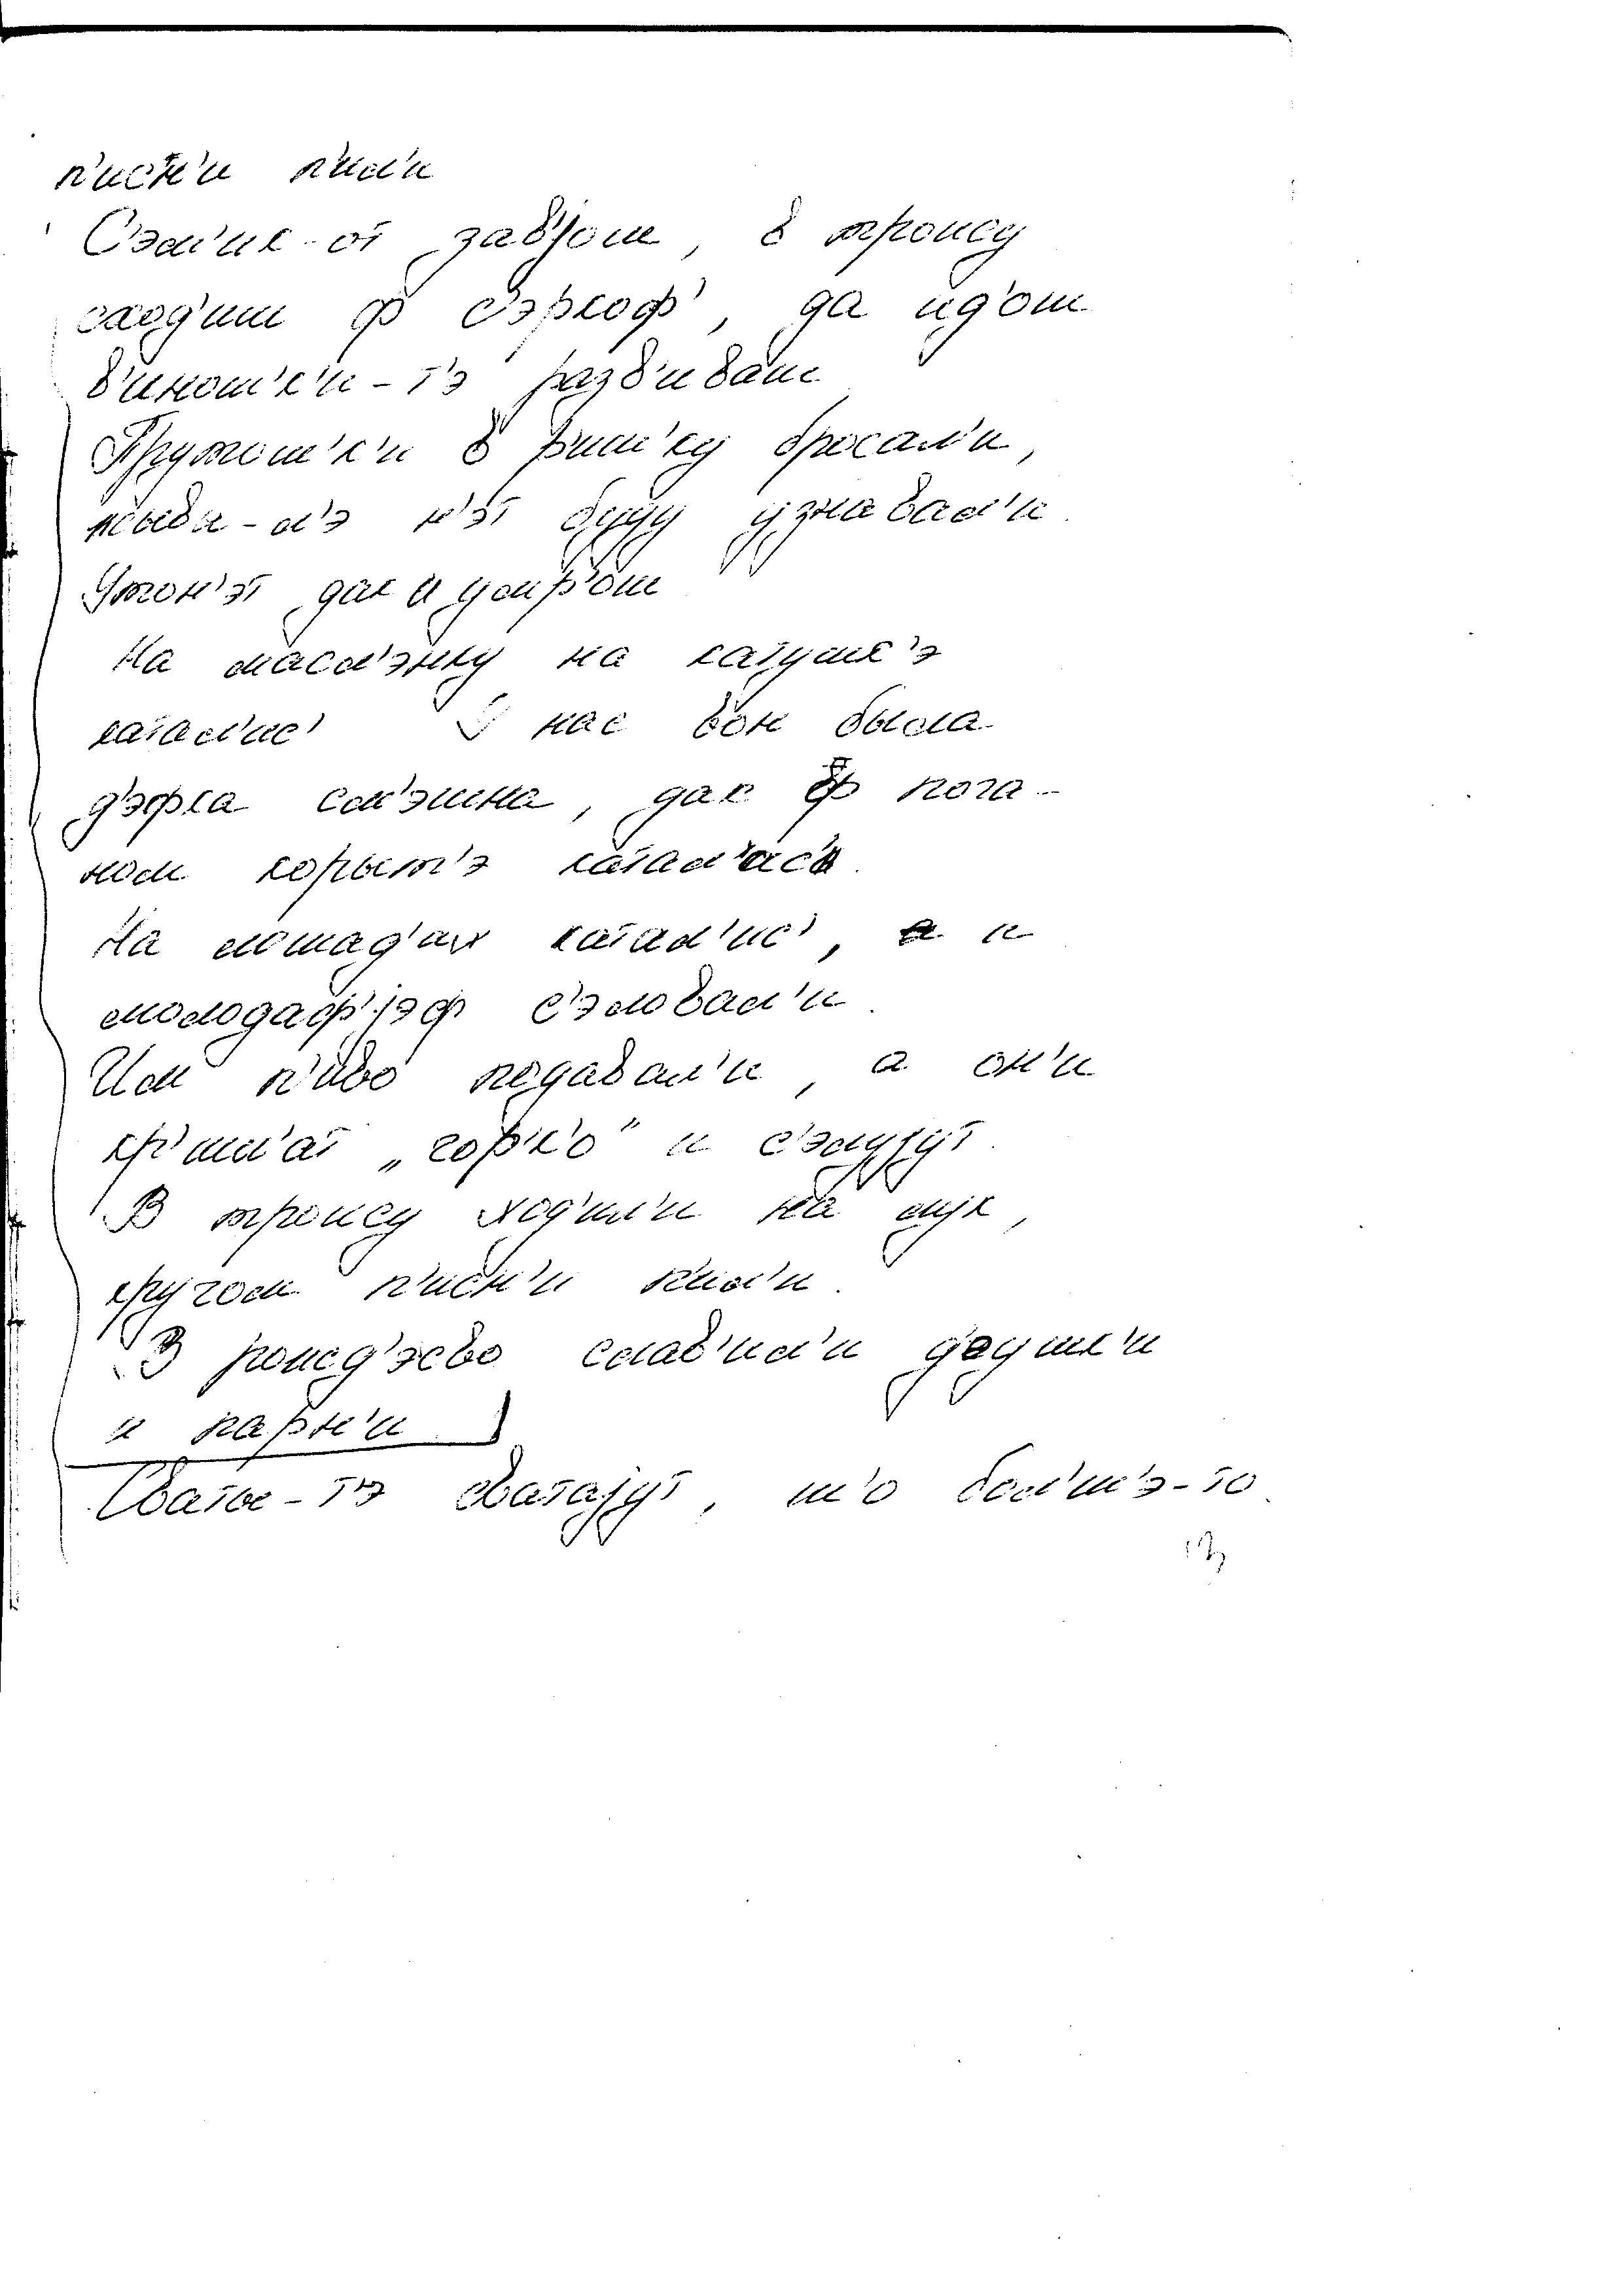 п'иc'н'и п'ил'и
Сэм'ик-от завјом, в троицу
сход'им ф с'эркоф', да ид'ом
в'иноч'к'и-т'э разв'ивам
Пруточ'к'и в р'ич'ку бросал'и,
жыва-л'э н'эт буду узнавал'и.
Утон'эт дак и умр'ом
На масл'энку на катушк'э
катал'ис' У нас вон была
д'эфка см'эшна, дак ф пога-
ном корыт'э катал'ас'а.
На лошад'ах катал'ис', а и
молодаф'јэф с'эловал'и.
Им п'иво подавал'и, а он'и
кр'ич'ат „горко" и с'элујут.
В троицу ход'ил'и на лук,
кругом п'ис'н'и п'ил'и.
В рожд'эсво слав'ил'и д'едушк'и
и парн'и
Сваты-т'э сватајут, ч'о бол'ш'э-то.